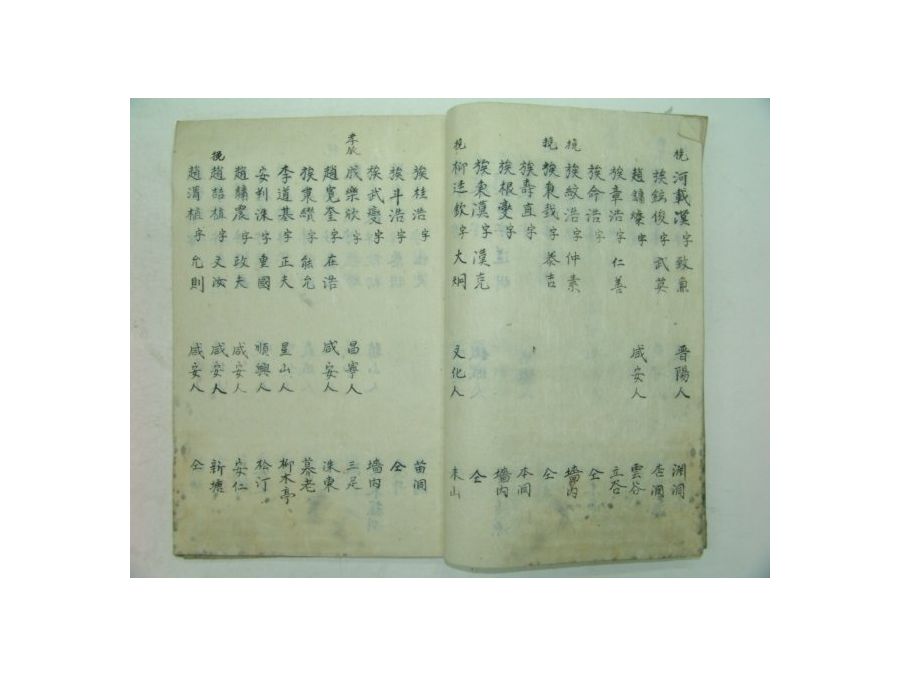 挽 河載漢 字致兼 晋陽人 淵洞
族鎬俊 字武英 唐洞
趙鏞燦 字 咸安人 雲谷
族章浩 字仁善 立谷
族命浩 字 仝
挽 族紋浩 字仲素 墻内
挽 族東哉 字恭吉 仝
族壽直 字 本洞
族根燮 字 墻内
族東漢 字漢克 仝
挽 柳遠欽 字大炯 文化人 末山
族桂浩 字 苗洞
族斗浩 字 仝
族武燮 字 墻内
成樂欣 字 昌寧人 三足
趙寬奎 字在浩 咸安人 洙東
族東纘 字能允 慕老
李道基 字正夫 星山人 柳木亭
安判洙 字重國 順興人 松汀
趙鏞震 字政夫 咸安人 安仁
挽 趙誥植 字文汝 咸安人 新塘
趙淯植 字允則 咸安人 仝